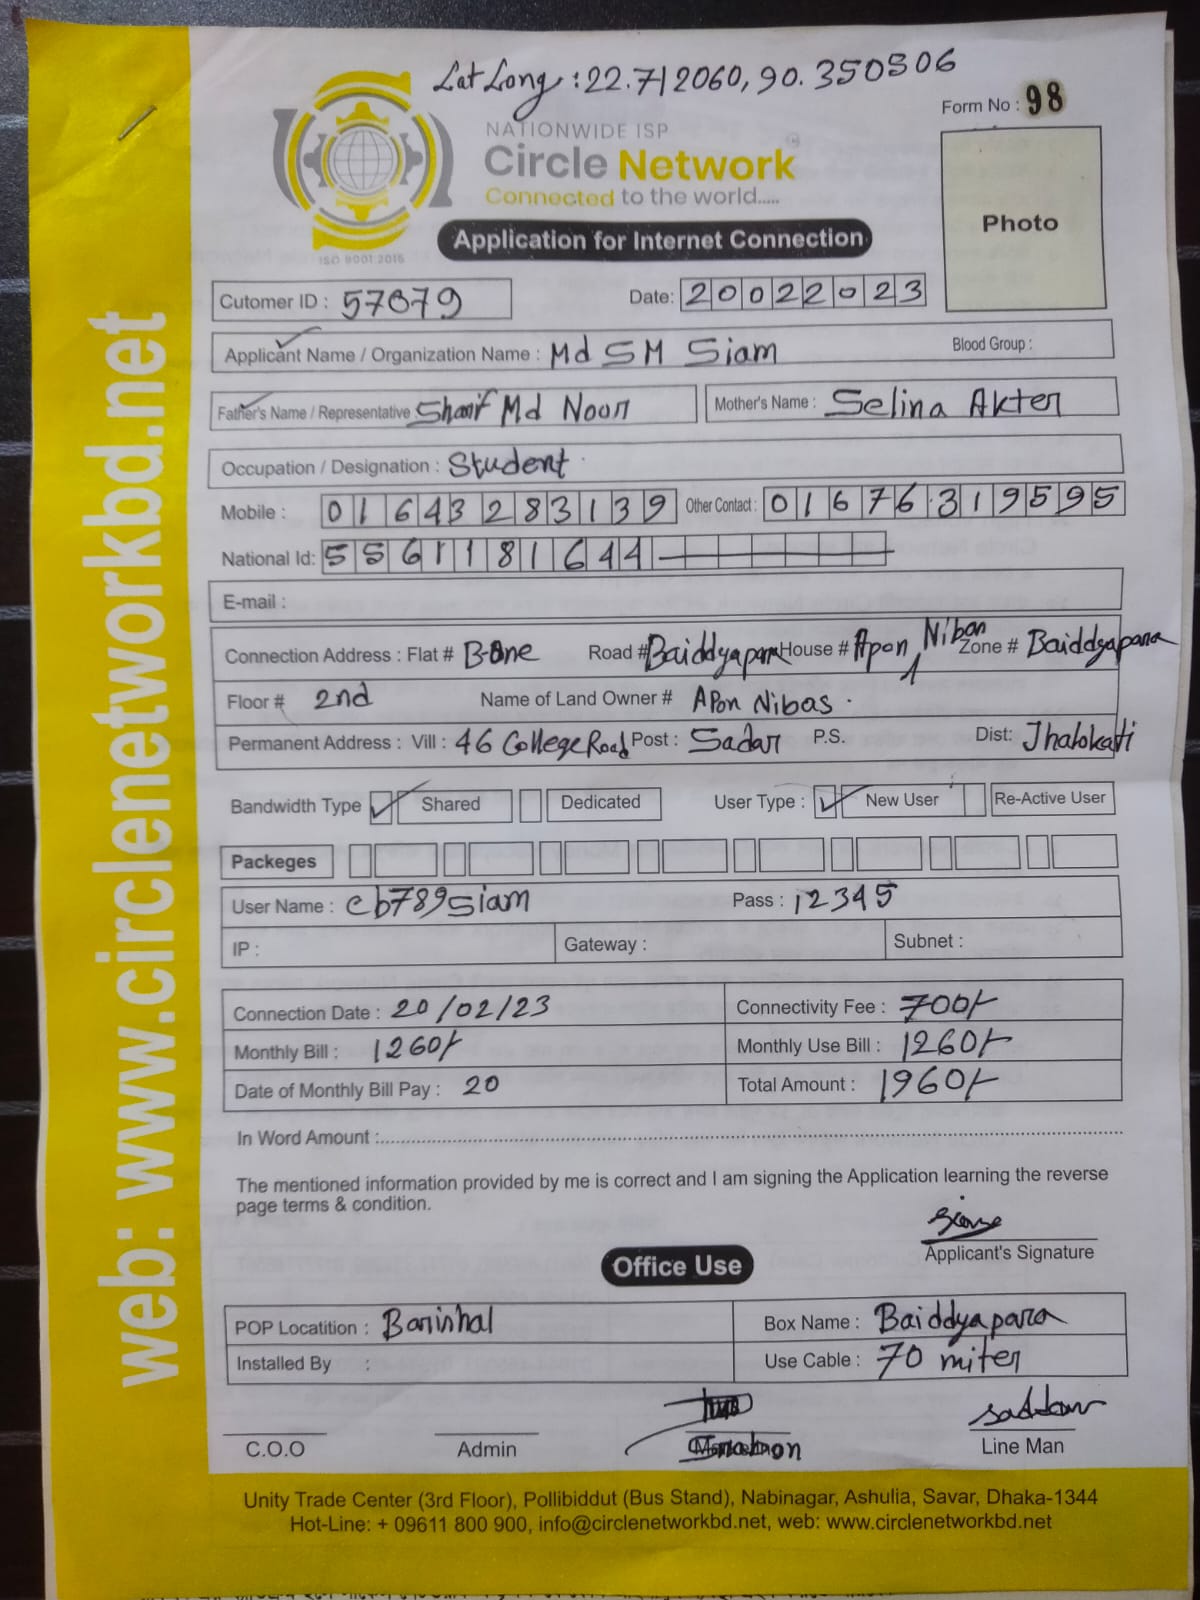 Lat Long : 22.712060, 90.350506
Form No : 98
NATIONWIDE ISP
Circle Network
Connected to the world.....
ISO 9001:2015
Photo
Application for Internet Connection
Cutomer ID : 57879 Date: 20022023
Applicant Name / Organization Name : Md SM Siam Blood Group :
Father's Name / Representative Sharif Md Noor Mother's Name : Selina Akter
Occupation / Designation : Student
Mobile : 01643283139 Other Contact : 01676319595
National Id: 5561181644
E-mail :
Connection Address : Flat # B-One Road # Baiddyapara House # Apon Nibas Zone # Baiddyapara
Floor # 2nd Name of Land Owner # APon Nibas.
Permanent Address : Vill : 46 College Road Post : Sadar P.S. Dist: Jhalokati
Bandwidth Type Shared Dedicated User Type : New User Re-Active User
Packeges
User Name : cb789siam Pass : 12345
IP : Gateway : Subnet :
Connection Date : 20/02/23 Connectivity Fee : 700/-
Monthly Bill : 1260/- Monthly Use Bill : 1260/-
Date of Monthly Bill Pay : 20 Total Amount : 1960/-
In Word Amount :
The mentioned information provided by me is correct and I am signing the Application learning the reverse
page terms & condition.
Applicant's Signature
Office Use
POP Locatition : Barishal Box Name : Baiddyapara
Installed By : Use Cable : 70 miter
C.O.O Admin Line Man
Unity Trade Center (3rd Floor), Pollibiddut (Bus Stand), Nabinagar, Ashulia, Savar, Dhaka-1344
Hot-Line: + 09611 800 900, info@circlenetworkbd.net, web: www.circlenetworkbd.net
web: www.circlenetworkbd.net